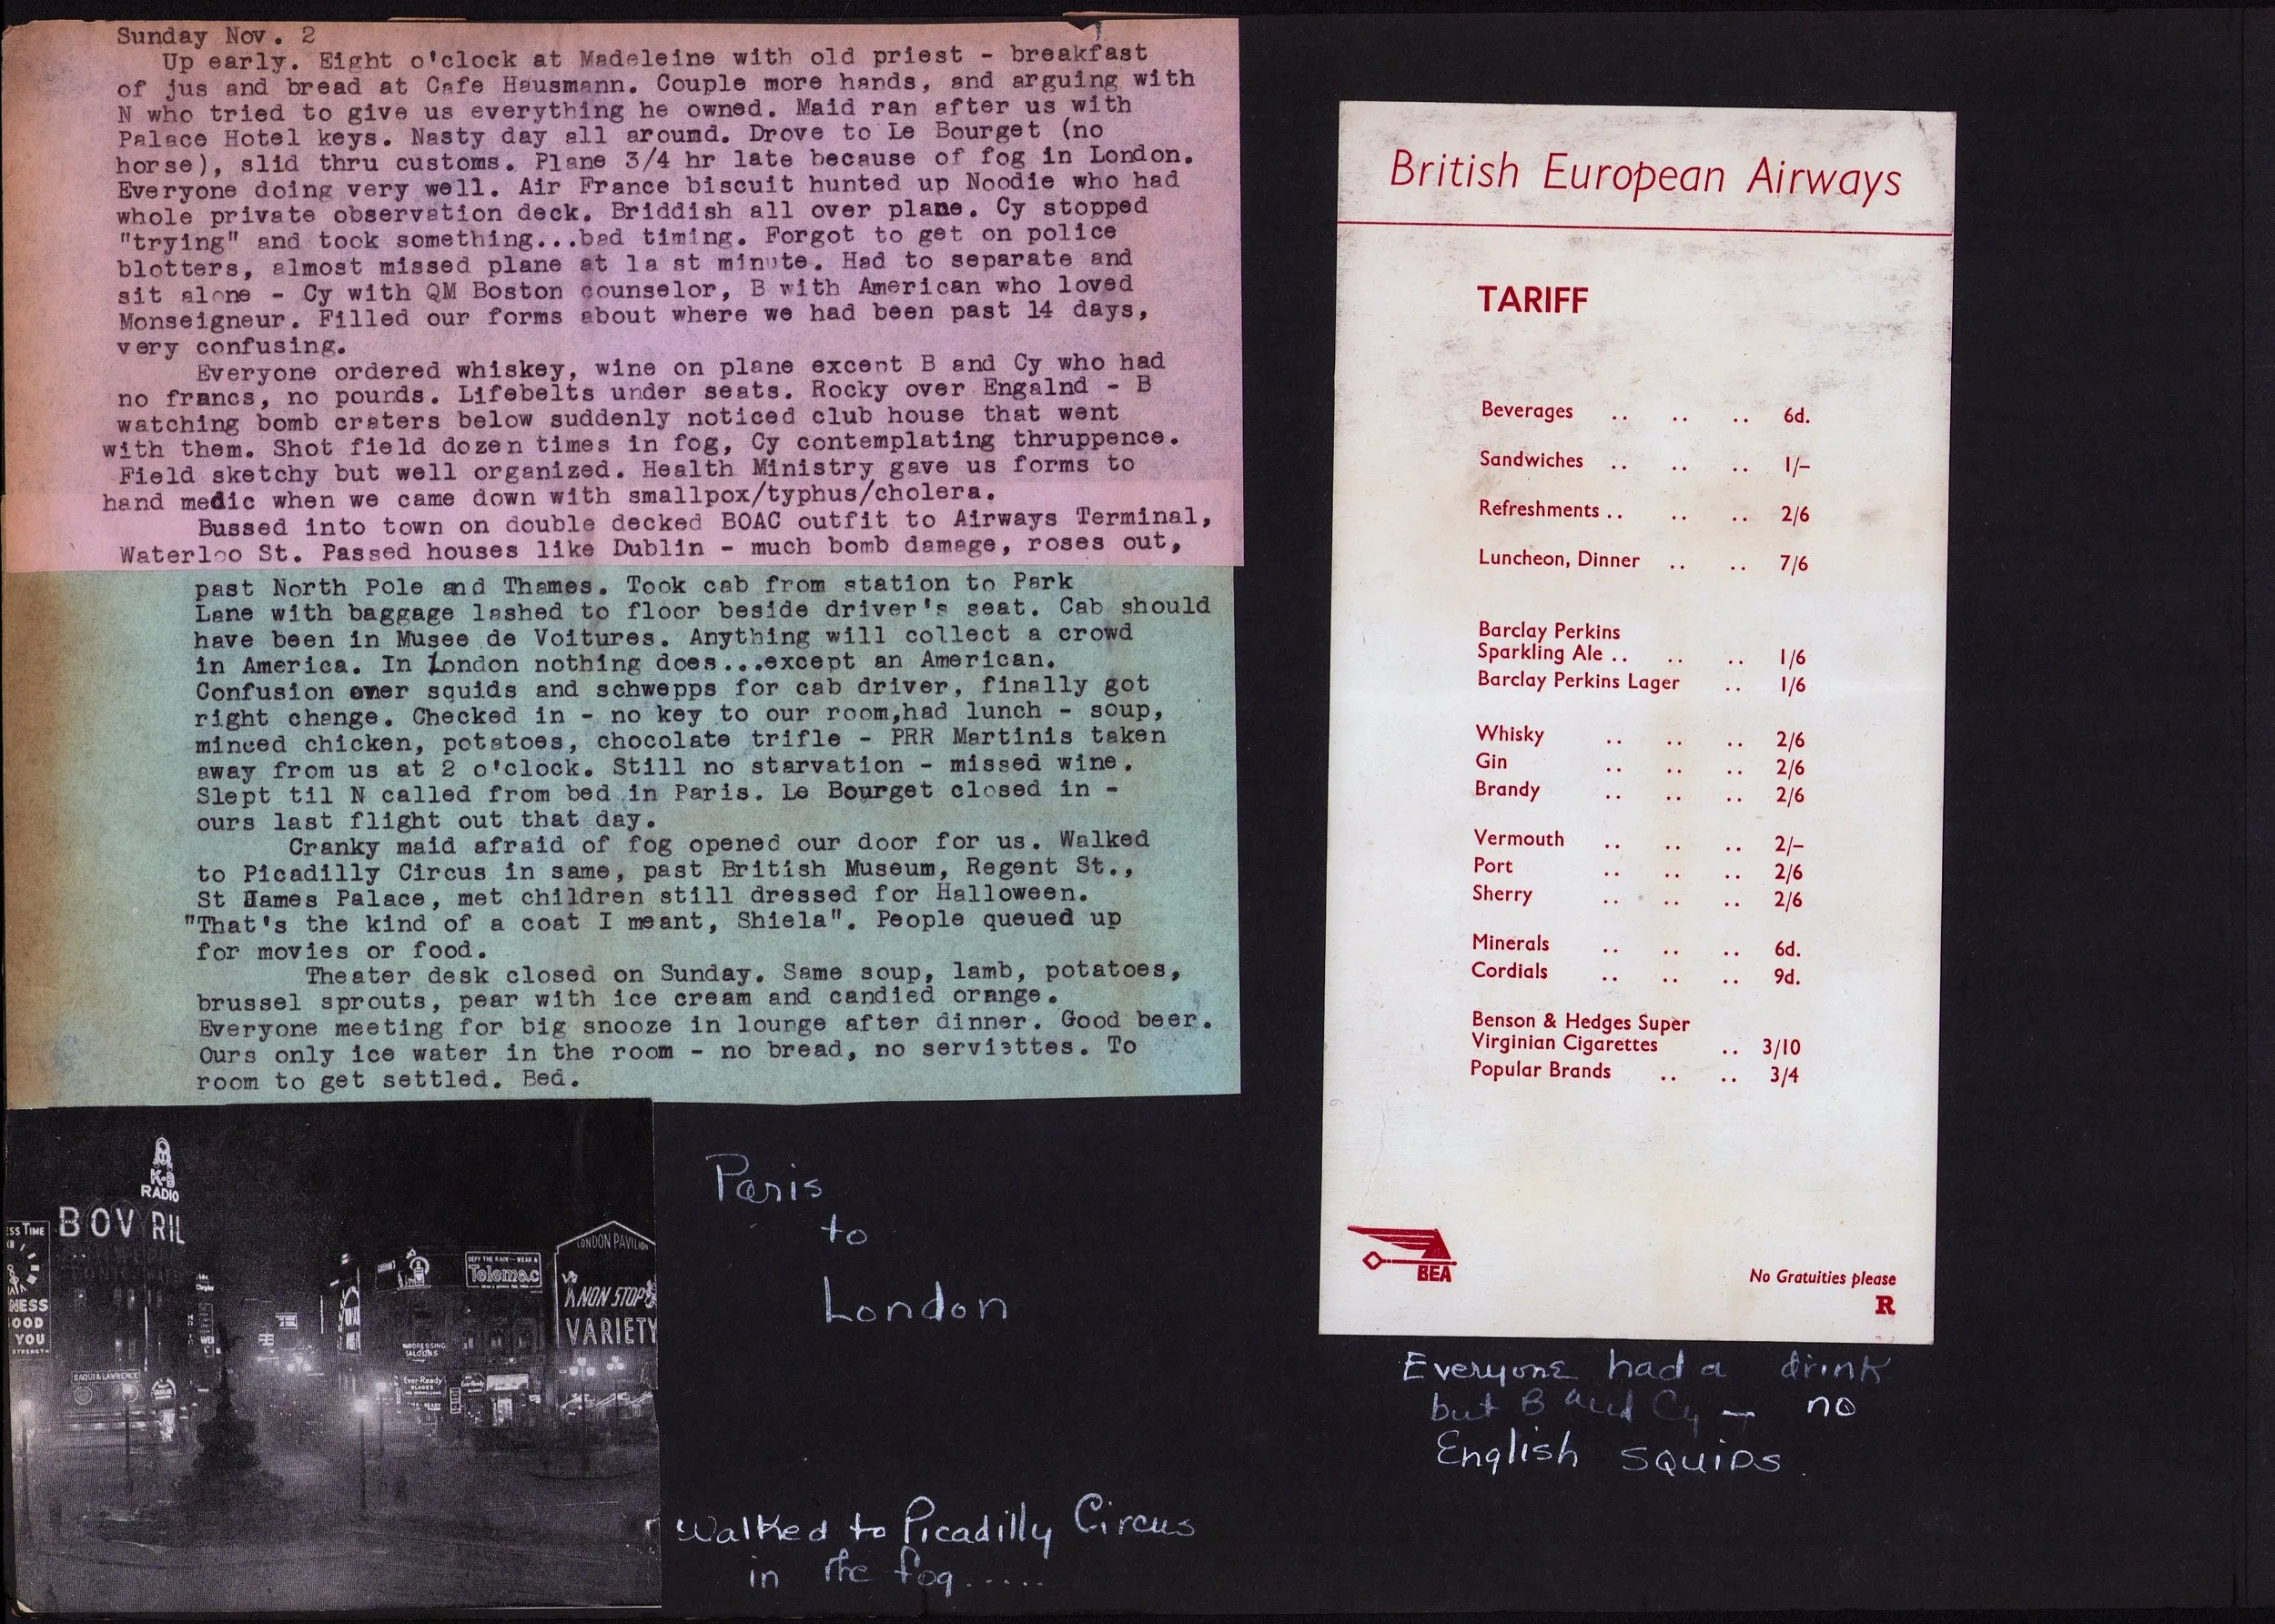 Sunday Nov. 2
Up early. Eight o'clock at Madeleine with old priest - breakfast
of jus and bread at Cafe Hausmann. Couple more hands, and arguing with
N who tried to give us everything he owned. Maid ran after us with
Palace Hotel keys. Nasty day all around. Drove to Le Bourget (no
horse), slid thru customs. Plane 3/4 hr late because of fog in London.
Everyone doing very well. Air France biscuit hunted up Noodie who had
whole private observation deck. Briddish all over plane. Cy stopped
"trying" and took something...bad timing. Forgot to get on police
blotters, almost missed plane at la st minute. Had to separate and
sit alone - Cy with QM Boston counselor, B with American who loved
Monseigneur. Filled our forms about where we had been past 14 days,
very confusing.
Everyone ordered whiskey, wine on plane except B and Cy who had
no francs, no pounds. Lifebelts under seats. Rocky over Engalnd - B
watching bomb craters below suddenly noticed club house that went
with them. Shot field dozen times in fog, Cy contemplating thruppence.
Field sketchy but well organized. Health Ministry gave us forms to
hand medic when we came down with smallpox/typhus/cholera.
Bussed into town on double decked BOAC outfit to Airways Terminal,
Waterloo St. Passed houses like Dublin - much bomb damage, roses out,
past North Pole and Thames. Took cab from station to Park
Lane with baggage lashed to floor beside driver's seat. Cab should
have been in Musee de Voitures. Anything will collect a crowd
in America. In London nothing does...except an American.
Confusion over squids and schwepps for cab driver, finally got
right change. Checked in - no key to our room,had lunch - soup,
minced chicken, potatoes, chocolate trifle - PRR Martinis taken
away from us at 2 o'clock. Still no starvation - missed wine.
Slept til N called from bed in Paris. Le Bourget closed in -
ours last flight out that day.
Cranky maid afraid of fog opened our door for us. Walked
to Picadilly Circus in same, past British Museum, Regent St.,
St James Palace, met children still dressed for Halloween.
"That's the kind of a coat I meant, Shiela". People queued up
for movies or food.
Theater desk closed on Sunday. Same soup, lamb, potatoes,
brussel sprouts, pear with ice cream and candied orange.
Everyone meeting for big snooze in lounge after dinner. Good beer.
Ours only ice water in the room - no bread, no serviettes. To
room to get settled. Bed.
K-B
RADIO
BOVRIL
SS TIME
NESS
OOD
YOU
STRENGTH
SAQUI & LAWRENCE
Telemac
Ever-Ready
BLADES
LONDON PAVILION
NON STOP
VARIETY
Paris
to
London
Walked to Picadilly Circus
in the fog.....
British European Airways
TARIFF
Beverages .. .. .. 6d.
Sandwiches .. .. .. 1/–
Refreshments .. .. .. 2/6
Luncheon, Dinner .. .. 7/6
Barclay Perkins
Sparkling Ale .. .. .. 1/6
Barclay Perkins Lager .. 1/6
Whisky .. .. .. 2/6
Gin .. .. .. 2/6
Brandy .. .. .. 2/6
Vermouth .. .. .. 2/–
Port .. .. .. 2/6
Sherry .. .. .. 2/6
Minerals .. .. .. 6d.
Cordials .. .. .. 9d.
Benson & Hedges Super
Virginian Cigarettes .. 3/10
Popular Brands .. .. 3/4
BEA
No Gratuities please
R
Everyone had a drink
but B and Cy – no
English squids.